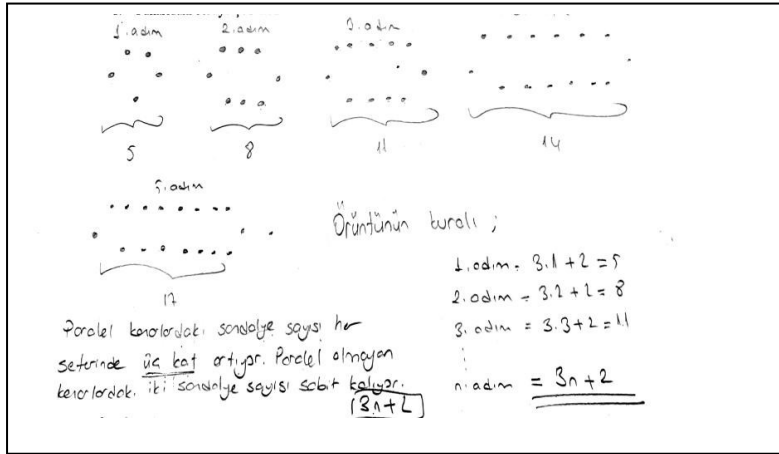 1. adım 2. adım 3. adım
5 8 11 14
5. adım
17
Örüntünün kuralı ;
1. adım = 3.1 + 2 = 5
2. adım = 3.2 + 2 = 8
3. adım = 3.3 + 2 = 11
n. adım = 3n + 2
Paralel kenarlardaki sandalye sayısı her
seferinde üç kat artıyor. Paralel olmayan
kenarlardaki iki sandalye sayısı sabit kalıyor.
3n + 2